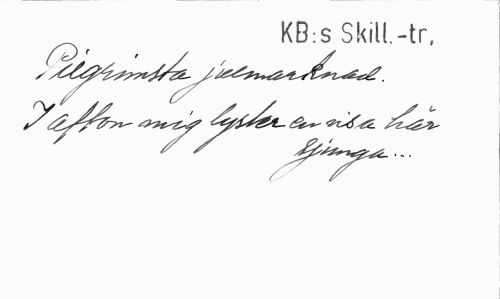 KB:s Skill.-tr.
Pilgrimsta julmarknad.
I afton mig lyster en visa här
sjunga...